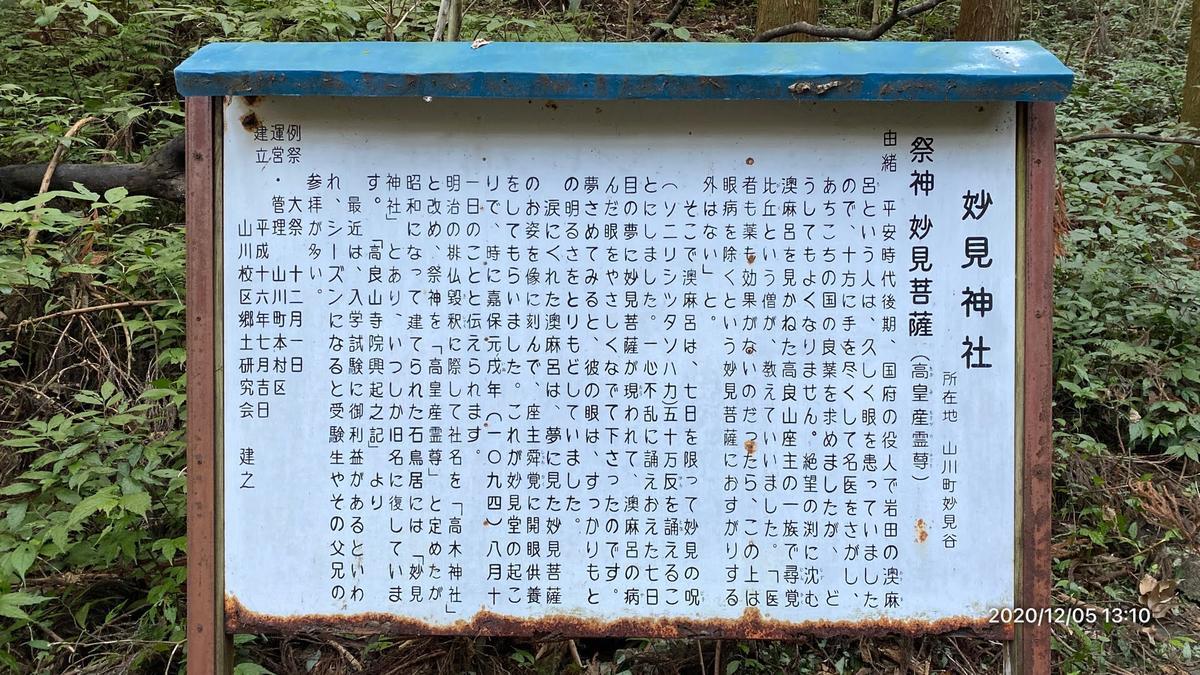 妙見神社
所在地 山川町妙見谷
祭神 妙見菩薩(高皇産霊尊)
由緒 平安時代後期、国府の役人で岩田の澳麻
呂という人は、久しく眼を患っていました
ので、十方に手を尽くして名医をさがし、
あちこちの国の良薬を求めましたが、ど
うしてもよくなりません。絶望の渕に沈む
澳麻呂を見かねた高良山座主の一族で尋覚
比丘という僧が、教えていいました。「医
者も薬も効果がないのだったら、この上は
眼病を除くという妙見菩薩におすがりする
外はない」と。
そこで澳麻呂は、七日を限って妙見の呪
(ソニリシツタソハカ)五十万反を誦えるこ
とにしました。一心不乱に誦えおえた七日
目の夢に妙見菩薩が現われて、澳麻呂の病
んだ眼をやさしくなでて下さったのです。
夢さめてみると、彼の眼は、すっかりもと
の明るさをとりもどしていました。
涙にくれた澳麻呂は、夢に見た妙見菩薩
のお姿を像に刻んで、座主舜覚に開眼供養
をしてもらいました。これが妙見堂の起こ
りで、時に嘉保元戌年(一〇九四)八月十
一日のことと伝えられます。
明治の排仏毀釈に際して社名を「高木神社」
と改め、祭神を「高皇産霊尊」と定めたが
昭和になって建てられた石鳥居には「妙見
神社」とあり、いつしか旧名に復していま
す。「高良山寺院興起之記」より
最近は、入学試験に御利益があるといわ
れ、シーズンになると受験生やその父兄の
参拝が多い。
例祭 大祭 十二月一日
運営・管理 山川町本村区
建立 平成十六年七月吉日
山川校区郷土研究会 建之
2020/12/05 13:10